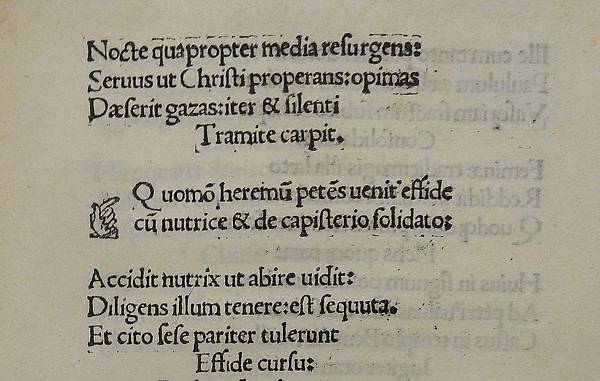 Nocte quapropter media resurgens:
Seruus ut Christi properans: opimas
Dæserit gazas: iter & silenti
Tramite carpit.
Quomõ heremũ petẽs uenit effide
cũ nutrice & de capisterio solidato:
Accidit nutrix ut abire uidit:
Diligens illum tenere: est sequuta.
Et cito sese pariter tulerunt
Effide cursu: